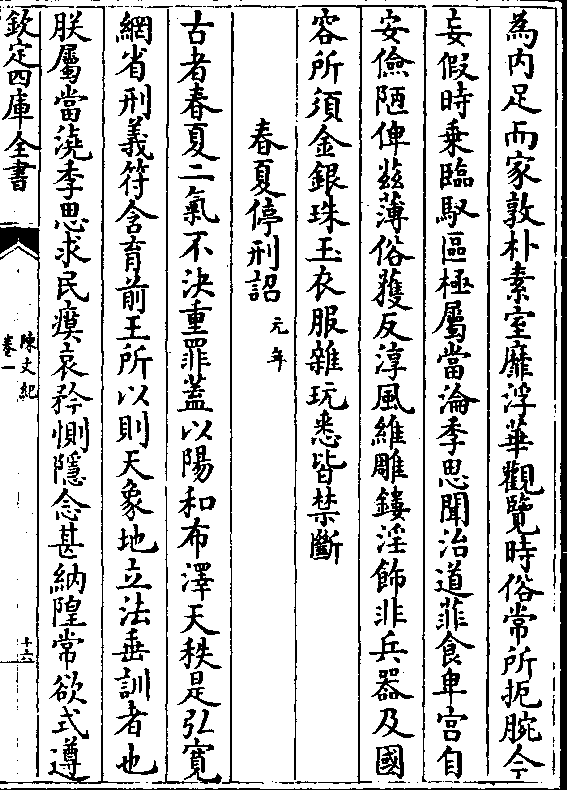 為内足而家敦朴素室靡浮華觀覽時俗常所扼腕今
妄假時乗臨馭區極屬當淪季思聞治道菲食卑宫自
安儉陋俾兹薄俗獲反淳風維雕鏤淫飾非兵器及國
容所須金銀珠玉衣服雜玩悉皆禁斷
春夏停刑詔 元年
古者春夏二氣不決重罪蓋以陽和布澤天秩是弘寛
網省刑義符含育前王所以則天象地立法垂訓者也
朕屬當澆季思求民瘼哀矜惻隠念甚納隍常欲式遵
欽定四庫全書
陳文紀
卷一
十六